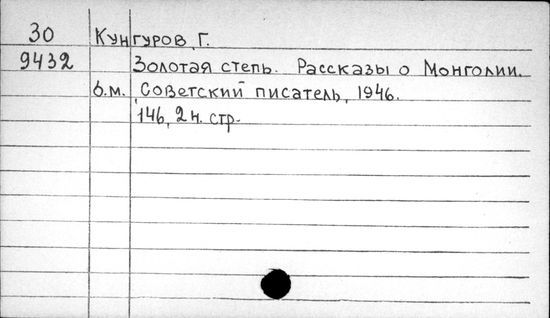 30 Кунгуров, Г.
9432 Золотая степь. Рассказы о Монголии.
б.м. Советский писатель, 1946.
146, 2 н. стр.